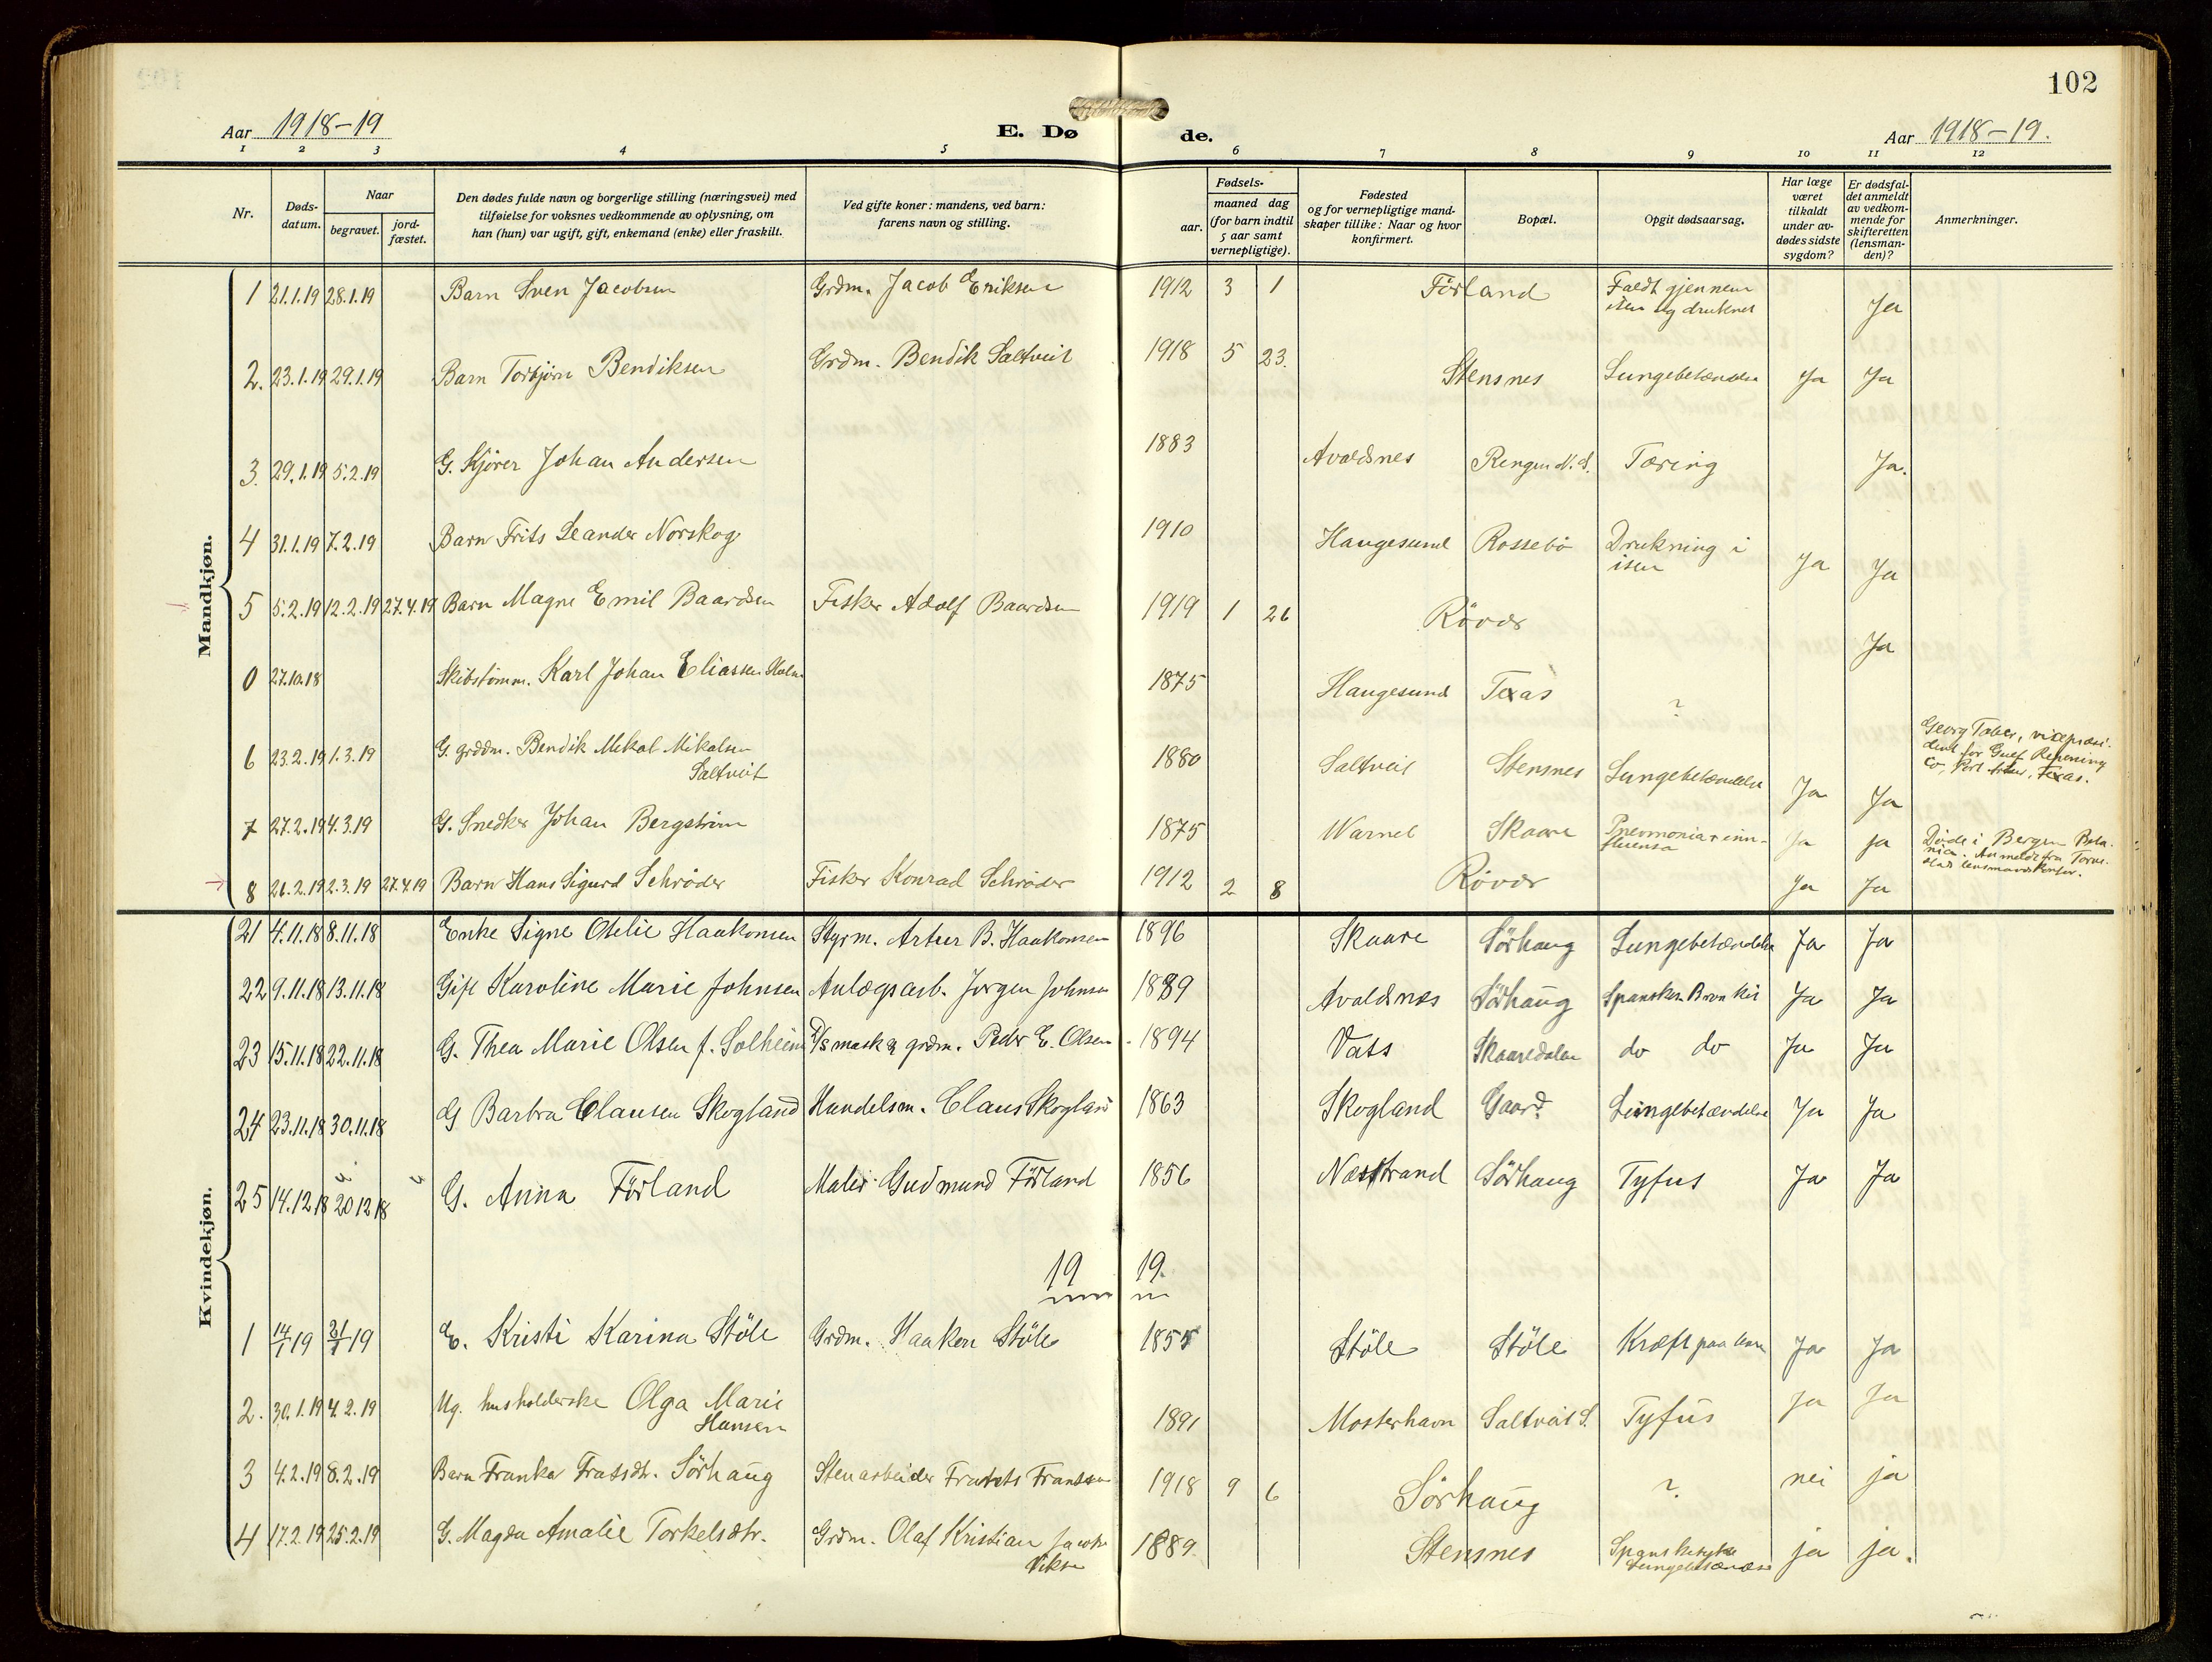 102
Aar 1918-19
E. Dø de.
Aar 1918-19.
1 2 3 4 5 6 7 8 9 10 11 12
Nr.
Døds-
datum.
Naar
begravet.
jord-
fæstet.
Den dødes fulde navn og borgerlige stilling (næringsvei) med
tilføielse for voksnes vedkommende av oplysning, om
han (hun) var ugift, gift, enkemand (enke) eller fraskilt.
Ved gifte koner: mandens, ved barn:
farens navn og stilling.
Fødsels-
aar.
maaned dag
(for barn indtil
5 aar samt
vernepligtige).
Fødested
og for vernepligtige mand-
skaper tillike: Naar og hvor
konfirmert.
Bopæl.
Opgit dødsaarsag.
Har læge
været
tilkaldt
under av-
dødes sidste
sygdom?
Er dødsfal-
det anmeldt
av vedkom-
mende for
skifteretten
(lensman-
den)?
Anmerkninger.
Mandkjøn.
1 21.1.19 28.1.19 Barn Sven Jacobsen Grdm. Jacob Eriksen 1912 3 1 Förland Faldt gjennem
isen og druknet Ja
2. 23.1.19 29.1.19 Barn Torbjørn Bendiksen Grdm. Bendik Saltveit 1918 5 23. Stensnes Lungebetændelse Ja Ja
3. 29.1.19 5.2.19 G. Kjører Johan Andersen 1883 Avaldsnes Rengen N. S. Tæring Ja.
4 31.1.19 7.2.19 Barn Frits Leander Norskog 1910 Haugesund Rossebö Drukning i
isen Ja Ja
5 5.2.19 12.2.19 27.4.19 Barn Magne Emil Baardsen Fisker Adolf Baardsen 1919 1 26 Röver Ja
0 27.10.18 Skibstømm. Karl Johan Eliassen Holm 1875 Haugesund Texas ?
6 23.2.19 1.3.19 G. grdm. Bendik Mikal Mikalsen
Saltveit 1880 Saltveit Stensnes Lungebetændelse Ja Ja
Georg Taber, vicepræsi-
dent for Gulf Refening
Co, Port Artur, Texas.
7 27.2.19 4.3.19 G. Snedker Johan Bergström 1875 Skaare Pnevmonia + inn-
fluensa Ja ja
Døde i Bergen
Anmeldt fra Torve-
stad lensmandskontor.
8 26.2.19 2.3.19 27.4.19 Barn Hans Sigurd Schröder Fisker Konrad Schröder 1912 2 8 Röver Ja Ja
Kvindekjøn.
21 4.11.18 8.11.18 Enke Signe Otelie Haakonsen Styrm. Artur B. Haakonsen 1896 Skaare Sörhaug Lungebetændelse Ja Ja
22 9.11.18 13.11.18 Gift Karoline Marie Johnsen Anlægsarb. Jørgen Johnsen 1889 Avaldsnes Sörhaug Spansken Bronkit Ja Ja
23 15.11.18 22.11.18 G. Thea Marie Olsen f. Solheim D/s mask & grdm. Peder E. Olsen 1894 Vats Skaaredalen do do Ja Ja
24 23.11.18 30.11.18 G Barbra Clausen Skogland Handelsm. Claus Skogland 1863 Skogland Gaard Lungebetændelse Ja Ja
25 14.12.18 20 12 18 G. Anna Förland Maler Gudmund Förland 1856 Næstrand Sörhaug Tyfus Ja Ja
19 19.
1 14/1 19 21/1 19 E. Kristi Karina Stöle Grdm. Haakon Stöle 1855 Stöle Stöle Kræft paa Ja Ja
2. 30.1.19 4.2.19 Ug. husholderske Olga Marie
Hansen 1891 Mosterhavn Saltveit S. Tyfus Ja Ja
3 4.2.19 8.2.19 Barn Franka Fratsdtr. Sörhaug Stenarbeider Frants Frantsen 1918 9 6 Sörhaug ? nei ja
4 17.2.19 25.2.19 G. Magda Amalie Torkelsdtr. Grdm. Olaf Kristian
Vikse 1889. Stensnes Spanskesyke
Lungebetændelse ja ja.